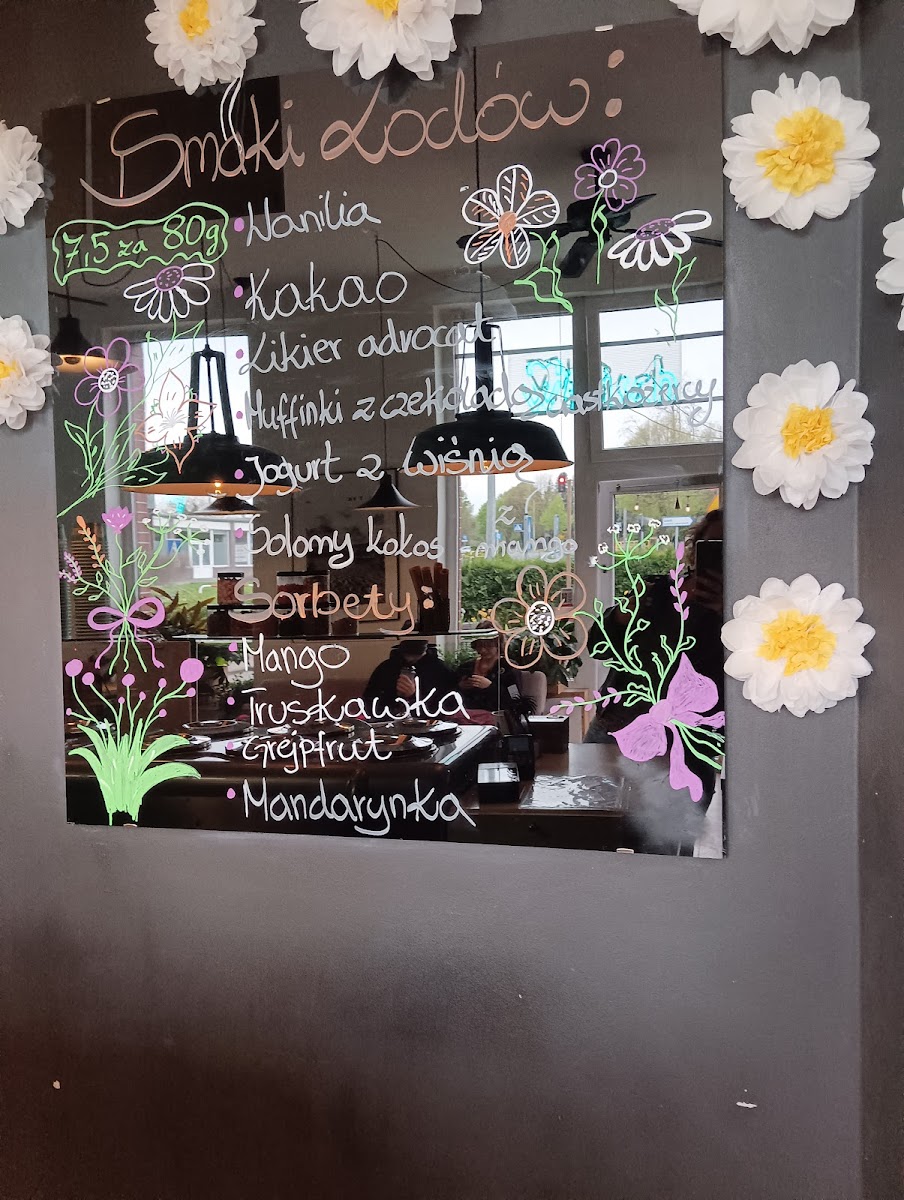 Smaki Lodów:
7,5 za 80g
Wanilia
Kakao
Likier advocat
Muffinki z czekoladą
Jogurt z wiśnią
Solomy kokos z mango
Sorbety:
Mango
Truskawka
Grejpfrut
Mandarynka